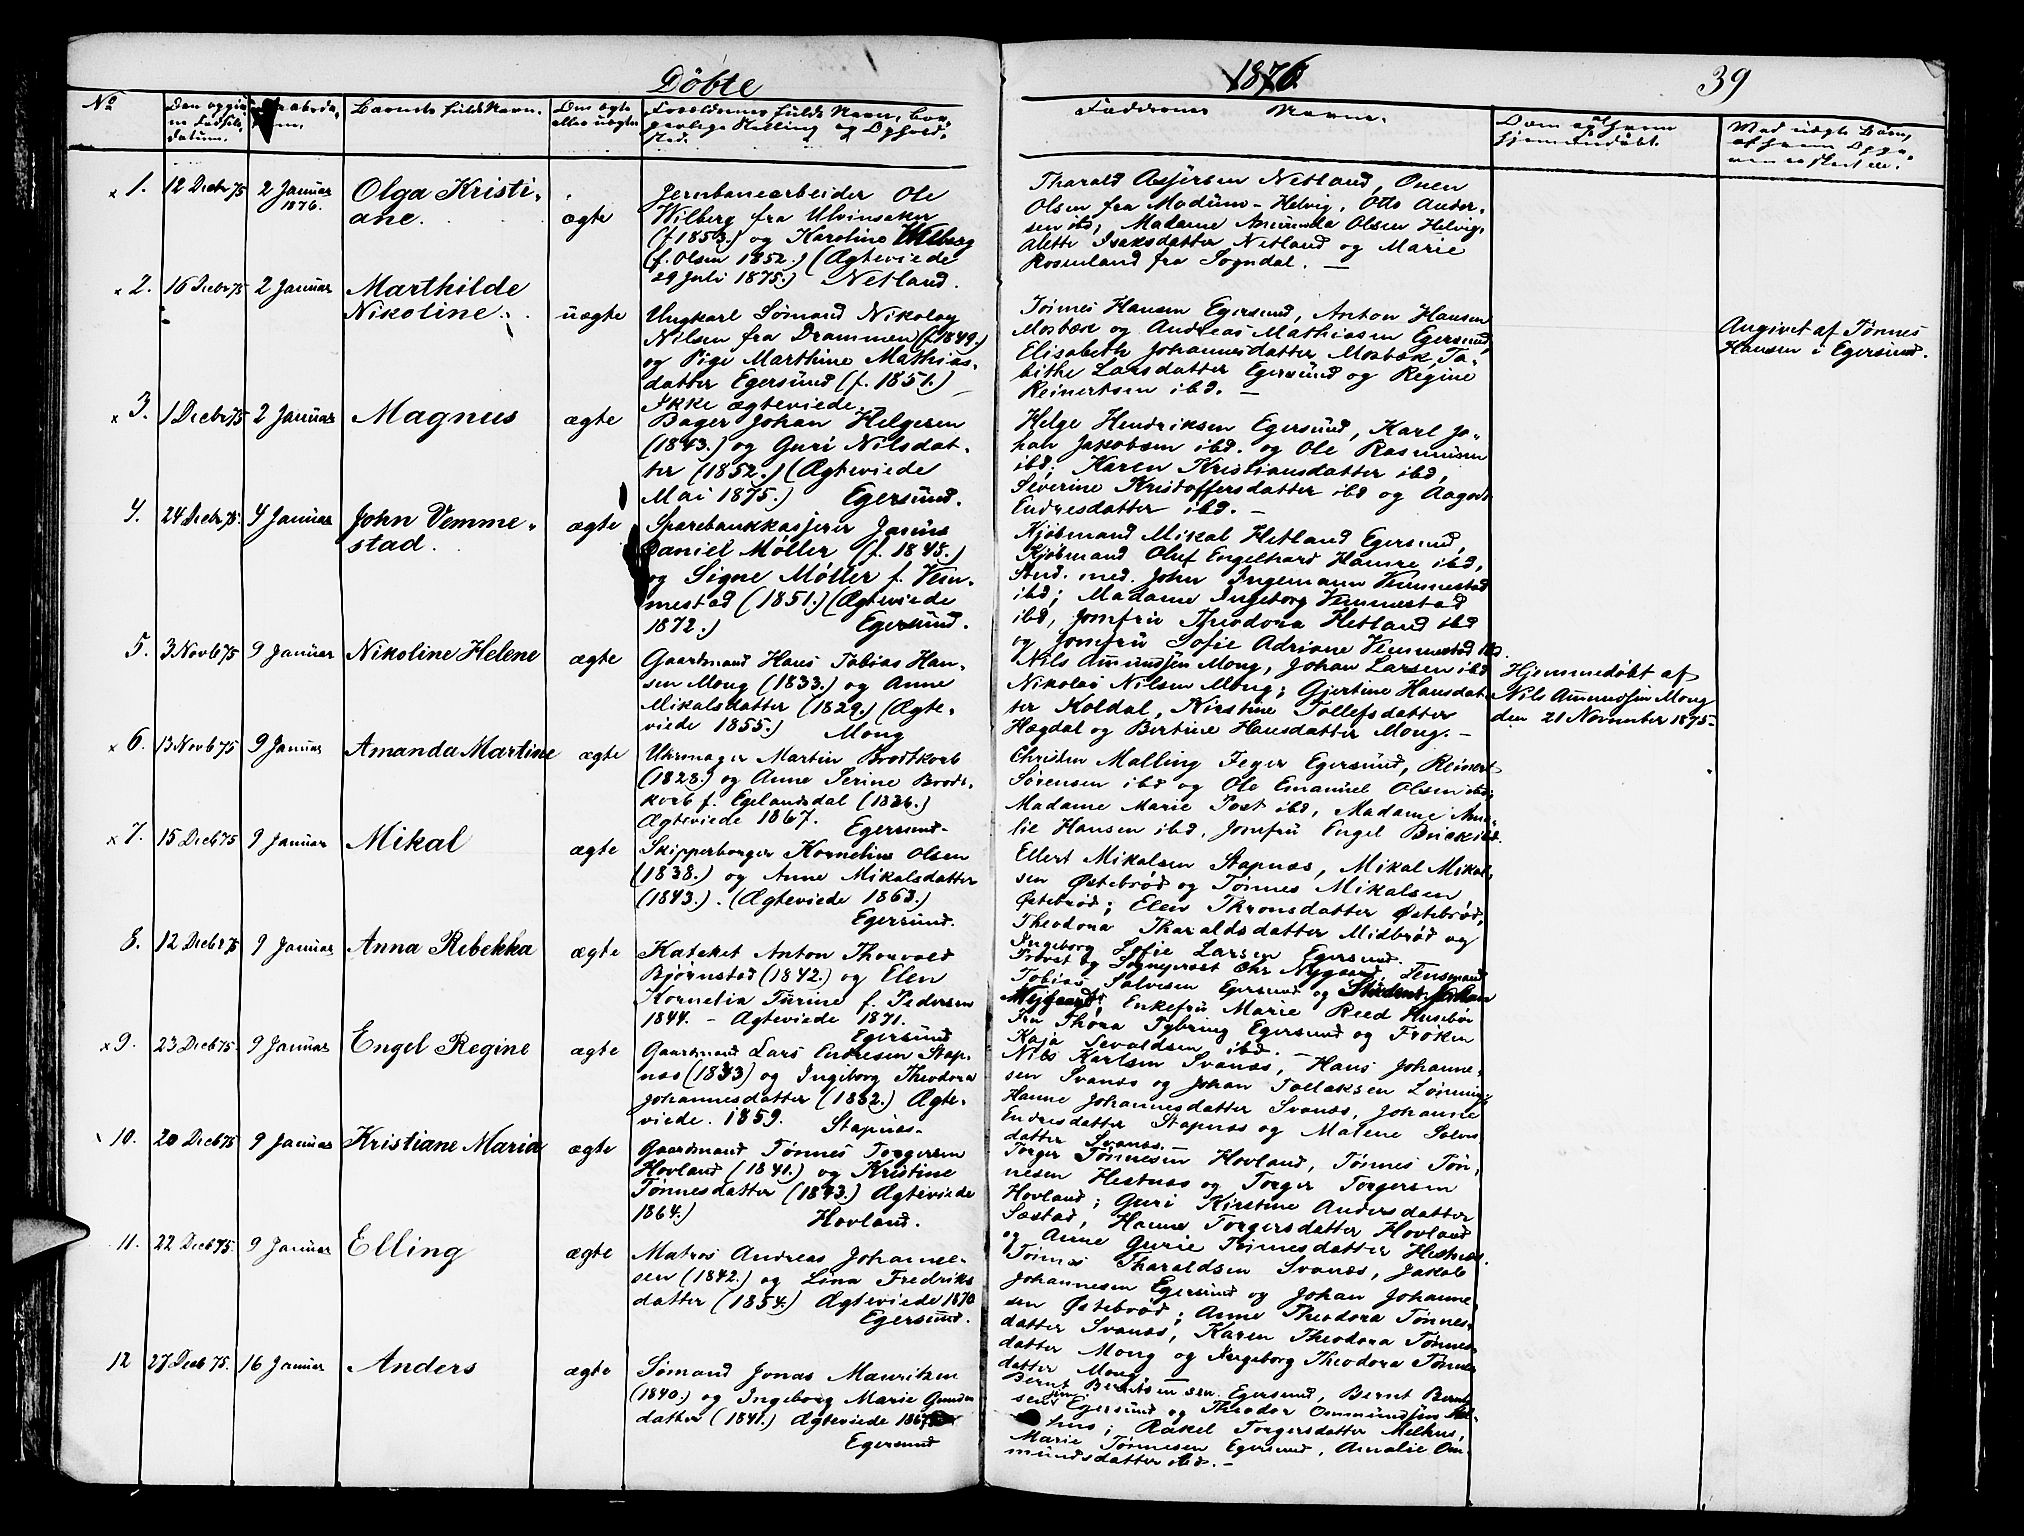 Döbte
1876.
39
No
Barnets fulde Navn.
Faddernes Navne.
1. 12 Decbr 75 2 Januar 1876. Olga Kristi-
ane. ægte
Jernbanearbeider Ole
Wilberg fra Ulvinsaker
(f. 1853.) og Karoline Wilberg
(f. Olsen 1852.) (Ægteviede
29 Juli 1875.) Netland.
Tharald Asjersen Netland,
Olsen fra Modum - Helvig, Otto Ander-
sen ibd, Madame Amunda Olsen Helvig,
Alette Isaksdatter Netland og Marie
Rosenland fra Sogndal. —
2. 16 Decbr 75 2 Januar Marthilde
Nikoline. uægte
Ungkarl Sømand Nikolay
Nilsen fra Drammen (f. 1849.)
og Pige Marthine Mathias-
datter Egersund (f. 1851.)
Ikke ægteviede.
Tønnes Hansen Egersund, Anton Hansen
Mosbæk og Andreas Mathiasen Egersund,
Elisabeth Johannesdatter Mosbæk, Ta-
bithe Larsdatter Egersund og Regine
Reinertsen ibd. —
Angivet af Tønnes
Hansen i Egersund.
3. 1 Decbr 75 2 Januar Magnus ægte
Bager Johan Helgesen
(1843.) og Guri Nilsdat-
ter (1852.) (Ægteviede
Mai 1875.) Egersund.
Helge Hendriksen Egersund, Karl Jo-
han Jakobsen ibd. og Ole Rasmusen
ibd; Karen Kristiansdatter ibd,
Severine Kristoffersdatter ibd og Aagot
Endresdatter ibd. —
4. 24 Decbr 75. 4 Januar John Vemme-
stad. ægte
Sparebankkasjerer Janus
Daniel Møller (f. 1848.)
og Signe Møller f. Vem-
mestad (1851.) (Ægteviede
1872.) Egersund.
Kjøbmand Mikal Hetland Egersund,
Kjøbmand Oluf Engelhard Hamre ibd,
Stud. med. John Ingemann Vemmestad
ibd; Madame Ingeborg Vemmestad
ibd, Jomfru Theodora Hetland ibd
og Jomfru Sofie Adriane Vemmestad ibd.
5. 3 Novb 75 9 Januar Nikoline Helene ægte
Gaardmand Hans Tobias Han-
sen Mong (1833.) og Anne
Mikalsdatter (1829.) (Ægte-
viede 1855.) Mong
Nils Amundsen Mong, Johan Larsen ibd
Nikolai Nilsen Mong; Gjertine Hansdat-
ter Koldal, Kirstine Tollefsdatter
Hægdal og Bertine Hansdatter Mong. —
Hjemmedøbt af
Nils Amundsen Mong
den 21 November 1875.
6. 13 Novb 75 9 Januar Amanda Martine ægte
Uhrmager Martin Brodtkorb
(1828.) og Anne Serine Brodt-
korb f. Egelandsdal (1826.)
Ægteviede 1867. Egersund.
Christen Malling Feyer Egersund, Reinert
Sørensen ibd og Ole Emanuel Olsen ibd;
Madame Marie Post ibd, Madame Ama-
lie Hansen ibd, Jomfru Engel ibd.
7. 15 Decb 75 9 Januar Mikal ægte
Skipperborger Kornelius Olsen
(1838.) og Anne Mikalsdatter
(1843.). (Ægteviede 1863.)
Egersund.
Ellert Mikalsen Stapnæs, Mikal Mikal-
sen Østebrød og Tønnes Mikalsen
Østebrød; Elen Thronsdatter Østebrød,
Theodora Tharaldsdatter Midbrød og
Ingeborg Sofie Larsen Egersund.
8. 12 Decbr 75 9 Januar Anna Rebekka ægte
Kateket Anton Thorvald
Bjørnstad (1842.) og Elen
Kornelia Turine f. Pedersen
1844. - Ægteviede 1871.
Egersund
Provst og Sognepræst Chr Nygaard,
Tobias Salvesen Egersund og Student Johan
Enkefru Marie Reed Husebø
Fru Thora Tybring Egersund og Frøken
Kaja Sevaldsen ibd. —
9. 23 Decb 75. 9 Januar Engel Regine ægte
Gaardmand Lars Endresen Stap-
næs (1833) og Ingeborg Theodora
Johannesdatter (1832.) Ægte-
viede. 1859. Stapnæs.
Nils Karlsen Svanæs, Hans Johanne-
sen Svanæs og Johan Tollaksen Lønning;
Hanne Johannesdatter Svanæs, Johanne
Endresdatter Stapnæs og Malene Salves-
datter Svanæs. —
10. 20 Decb 75 9 Januar Kristiane Maria ægte
Gaardmand Tønnes Torgersen
Hovland (1841.) og Kristine
Tønnesdatter (1843.) Ægteviede
1864.) Hovland.
Torger Tønnesen Hovland, Tønnes Tøn-
nesen Hestnæs og Torger Torgersen
Hovland; Guri Kirstine Andersdatter
Sæstad, Hanne Torgersdatter Hovland
og Anne Gurie Tønnesdatter Hestnæs.
11. 22 Decb 75. 9 Januar Elling ægte
Matros Andreas Johanne-
sen (1842.) og Lina Fredriks
datter (1854.) Ægteviede 1870
Egersund.
Tønnes Tharaldsen Svanæs, Jakob
Johannesen Egersund og Johan Johanne-
sen Østebrød; Anne Theodora Tønnes-
datter Svanæs, Karen Theodora Tønnes-
datter Mong og Ingeborg Theodora Tønnes-
datter Mong.
12 27 Decb 75. 16 Januar Anders ægte
Sømand Jonas Mauritzen
(1840.) og Ingeborg Marie
datter (1841.) Ægteviede 1867
Egersund
Bernt Berntsen sen. Egersund, Bernt Bernt-
sen jun Egersund og Theodor Ommundsen Mel-
hus; Rakel Torgersdatter Melhus,
Marie Tønnesen Egersund, Amalie Om-
mundsdatter ibd. —